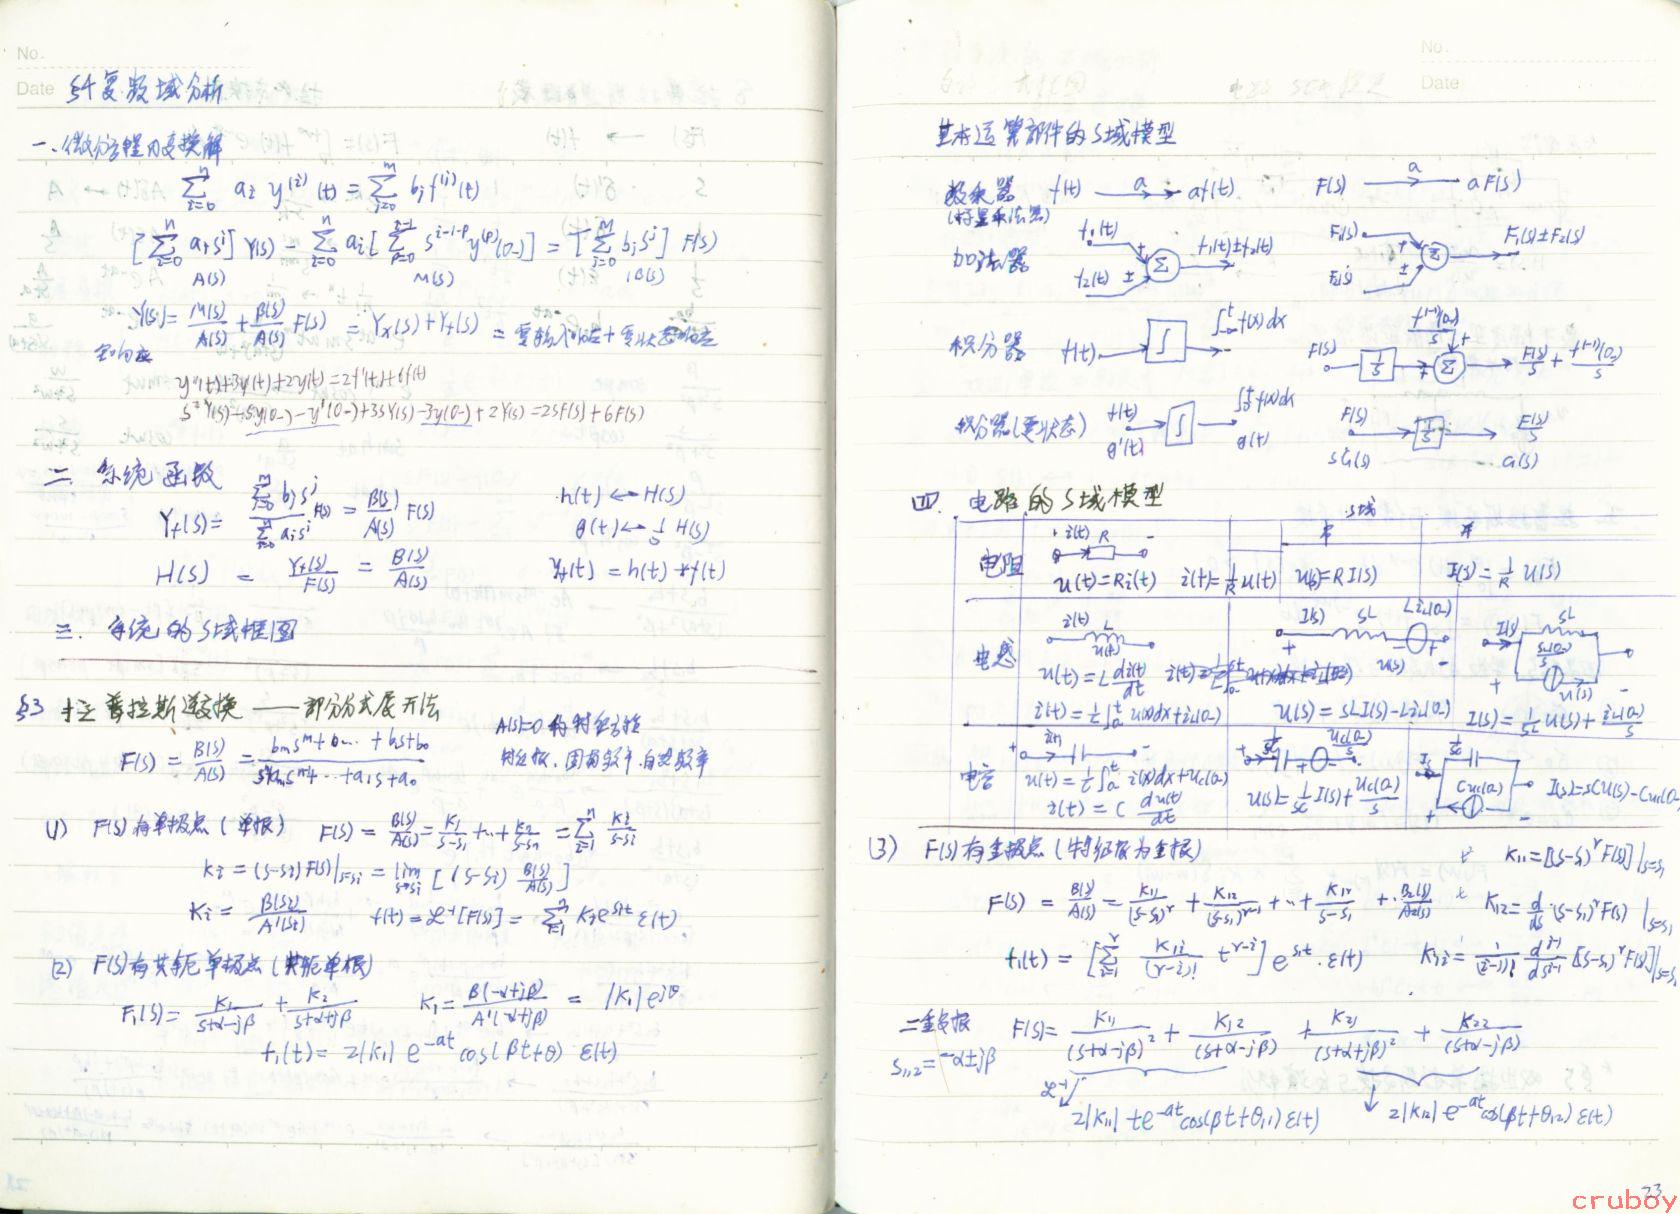 No.
Date
§4 复频域分析
一、微分方程的变换解
\sum_{i=0}^{n} a_i y^{(i)}(t) = \sum_{j=0}^{m} b_j f^{(j)}(t)
[\sum_{i=0}^{n} a_i s^i] Y(s) - \sum_{i=0}^{n} a_i [\sum_{p=0}^{i-1} s^{i-1-p} y^{(p)}(0_-)] = [\sum_{j=0}^{m} b_j s^j] F(s)
A(s) M(s) B(s)
Y(s) = \frac{M(s)}{A(s)} + \frac{B(s)}{A(s)} F(s) = Y_x(s) + Y_f(s) = 零输入响应 + 零状态响应
全响应
y''(t)+3y'(t)+2y(t)=2f'(t)+6f(t)
s²Y(s)-sy(0_-)-y'(0_-)+3sY(s)-3y(0_-)+2Y(s)=2sF(s)+6F(s)
二. 系统函数
Y_f(s) = \frac{\sum_{j=0}^{m} b_j s^j}{\sum_{i=0}^{n} a_i s^i} F(s) = \frac{B(s)}{A(s)} F(s)
h(t) ↔ H(s)
g(t) ↔ \frac{1}{s} H(s)
H(s) = \frac{Y_f(s)}{F(s)} = \frac{B(s)}{A(s)}
y_f(t) = h(t) * f(t)
三. 系统的s域框图
§3 拉普拉斯逆变换——部分分式展开法
F(s) = \frac{B(s)}{A(s)} = \frac{b_m s^m + b_{m-1} … + b_1 s + b_0}{s^n + a_{n-1} s^{n-1} + … + a_1 s + a_0}
A(s)=0 的特征方程
特征根、固有频率、自然频率
(1) F(s)有单极点(单根) F(s) = \frac{B(s)}{A(s)} = \frac{K_1}{s-s_1} + … + \frac{K_n}{s-s_n} = \sum_{i=1}^{n} \frac{K_i}{s-s_i}
K_i = (s-s_i)F(s)|_{s=s_i} = \lim_{s→s_i} [(s-s_i) \frac{B(s)}{A(s)}]
K_i = \frac{B(s_i)}{A'(s_i)} f(t) = ℒ^{-1}[F(s)] = \sum_{i=1}^{n} K_i e^{s_i t} ε(t).
(2) F(s)有共轭单极点(共轭单根)
F_1(s) = \frac{K_1}{s+α-jβ} + \frac{K_2}{s+α+jβ} K_1 = \frac{B(-α+jβ)}{A'(-α+jβ)} = |K_1| e^{jθ}
f_1(t) = 2|K_1| e^{-αt} cos(βt+θ)·ε(t)
No.
Date
基本运算部件的s域模型
数乘器 f(t) a af(t) F(s) a aF(s)
(标量乘法器)
加法器 f_1(t) f_2(t) + ± Σ f_1(t)±f_2(t) F_1(s) F_2(s) + ± Σ F_1(s)±F_2(s)
积分器 f(t) ∫ \int_{-∞}^{t} f(x)dx F(s) \frac{1}{s} + Σ \frac{f^{(-1)}(0_-)}{s} + \frac{F(s)}{s} + \frac{f^{(-1)}(0_-)}{s}
积分器(零状态) f(t) g'(t) ∫ \int_{0}^{t} f(x)dx g(t) F(s) sG(s) \frac{1}{s} \frac{F(s)}{s} G(s)
四. 电路的s域模型
s域
串 并
电阻 + i(t) R -
u(t)=Ri(t) i(t)=\frac{1}{R}u(t) U(s)=RI(s) I(s)=\frac{1}{R} U(s)
电感 i(t) L u(t) I(s) sL Li_L(0_-) + U(s) + - I(s) sL \frac{i_L(0_-)}{s} + U(s) -
u(t)=L\frac{di(t)}{dt}
i(t)=\frac{1}{L}\int_{0_-}^{t} u(x)dx+i_L(0_-) U(s)=sLI(s)-Li_L(0_-) I(s)=\frac{1}{sL}U(s)+\frac{i_L(0_-)}{s}
电容 + i(t) - + \frac{1}{sC} + \frac{u_C(0_-)}{s} - I(s) \frac{1}{sC} Cu_C(0_-) + -
u(t)=\frac{1}{C}\int_{0_-}^{t} i(x)dx+u_C(0_-) U(s)=\frac{1}{sC}I(s)+\frac{u_C(0_-)}{s} I(s)=sCU(s)-Cu_C(0_-)
i(t)=C\frac{du(t)}{dt}
(3) F(s)有重极点(特征根为重根) K_{11}=[(s-s_1)^r F(s)]|_{s=s_1}
F(s) = \frac{B(s)}{A(s)} = \frac{K_{11}}{(s-s_1)^r} + \frac{K_{12}}{(s-s_1)^{r-1}} + … + \frac{K_{1r}}{s-s_1} + \frac{B_2(s)}{A_2(s)} K_{12}=\frac{d}{ds}(s-s_1)^r F(s)|_{s=s_1}
f_1(t) = [\sum_{i=1}^{r} \frac{K_{1i}}{(r-i)!} t^{r-i}] e^{s_1 t}·ε(t) K_{1i}=\frac{1}{(i-1)!}\frac{d^{i-1}}{ds^{i-1}}[(s-s_1)^r F(s)]|_{s=s_1}
二重复根 F(s)=\frac{K_{11}}{(s+α-jβ)^2}+\frac{K_{12}}{(s+α-jβ)}+\frac{K_{21}}{(s+α+jβ)^2}+\frac{K_{22}}{(s+α-jβ)}
s_{1,2}=-α±jβ
ℒ^{-1} 2|K_{11}|te^{-αt}cos(βt+θ_{11})ε(t) 2|K_{12}|e^{-αt}cos(βt+θ_{12})ε(t)
23
cruboy